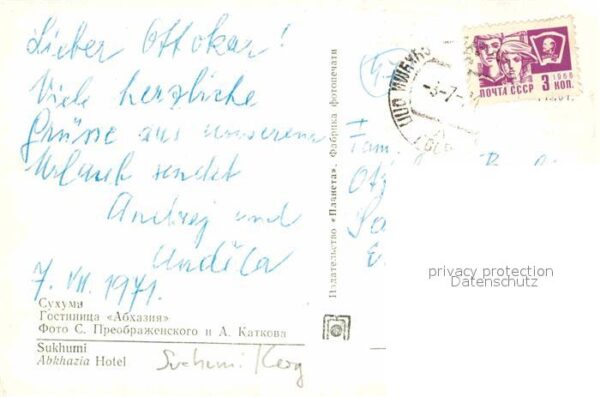 Lieber Ottokar!
Viele herzliche
Grüsse aus unserem
Urlaub sendet
Andrej und
7. VII. 1971.
Сухуми
Гостиница «Абхазия»
Фото С. Преображенского и А. Каткова
Sukhumi
Abkhazia Hotel
Suchumi
Издательство «Планета». Фабрика фотопечати
1966
3
ПОЧТА СССР КОП.
privacy protection
Datenschutz